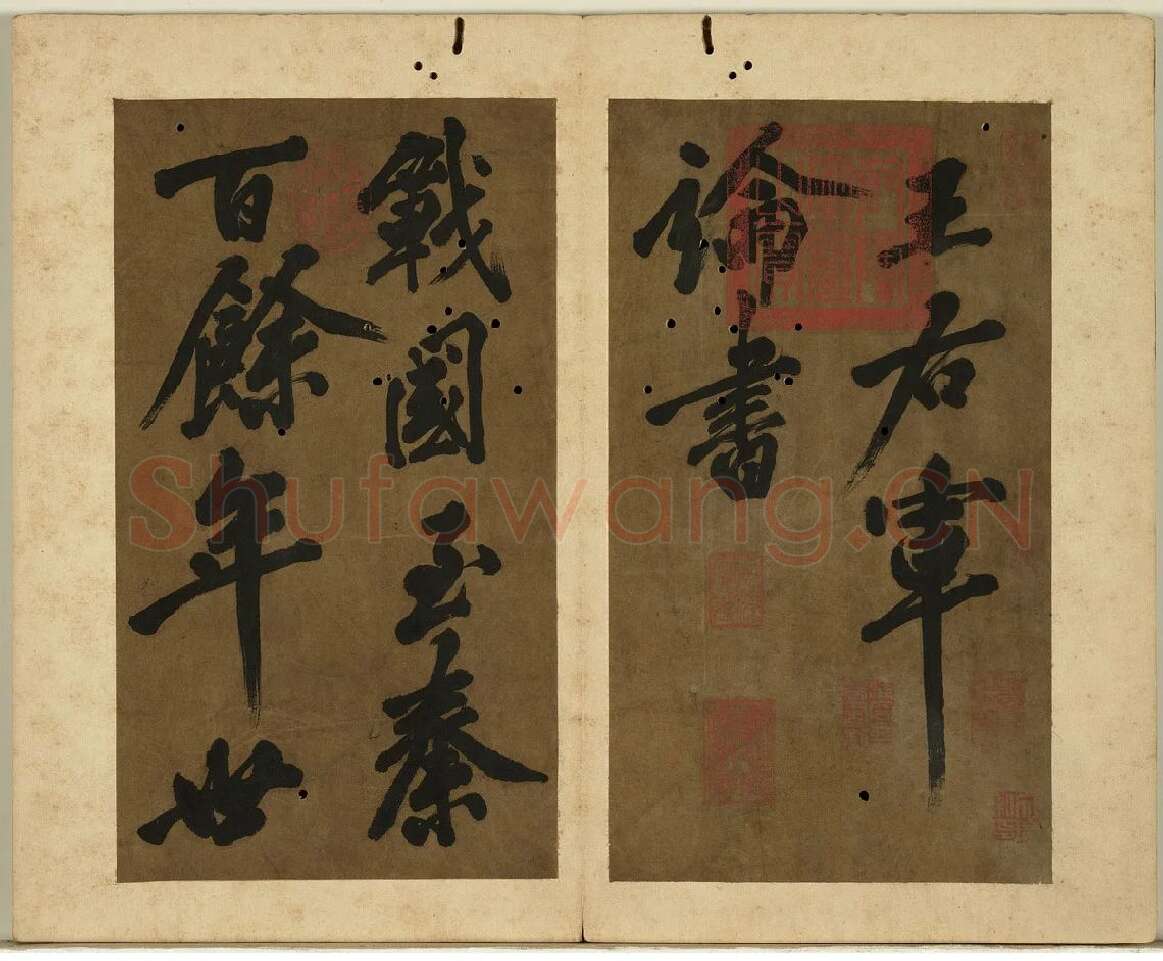 王右軍
論書
戰國至秦
百餘年世
Shufawang.CN